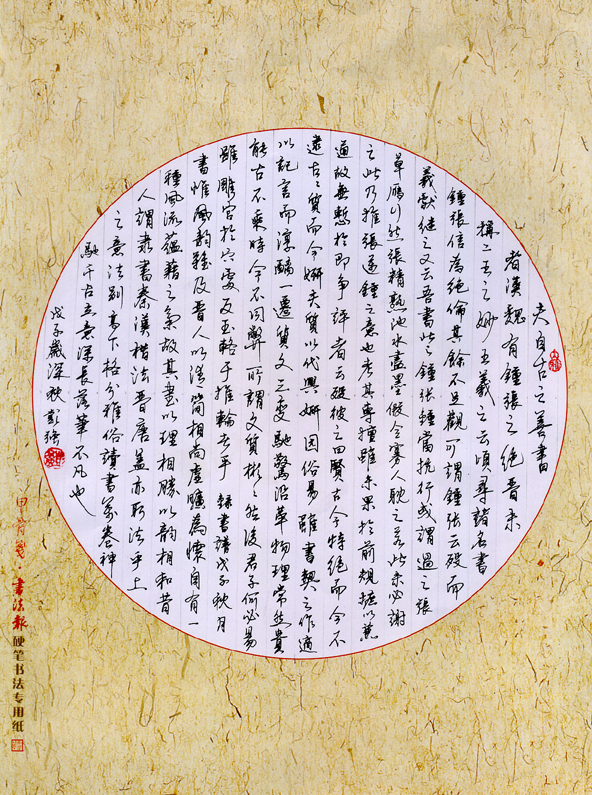 夫自古之善書
者漢魏有鍾張之絕晉末
稱二王之妙王羲之云頃尋諸名書
鍾張信為絕倫其餘不足觀可謂鍾張云歿而
羲獻繼之又云吾書比之鍾張鍾當抗行或謂過之張
草雁行然張精熟池水盡墨假令寡人耽之若此未必謝
之此乃推張邁鍾之意也考其專擅雖未果於前規摭以兼
通故無慚於即事評者云歿彼之四賢古今特絕而今不
逮古々質而今妍夫質以代興妍因俗易雖書契之作適
以記言而淳醨一遷質文三變馳騖沿革物理常然貴
能古不乖時今不同弊所謂文質彬々然後君子何必易
雖雕宮於穴處反玉輅于椎輪者乎 錄書譜戊子秋月
書惟風韻難及晉人以清簡相尚虛曠為懷自有一
種風流蘊藉之氣故其書以理相勝以韻相和昔
人謂隸書秦漢楷法晉唐蓋亦取法乎上
之意法別高下格分雅俗讀書萬卷神
馳千古立意深長落筆不凡也
戊子歲深秋
甲骨箋 書法報 硬笔书法专用纸